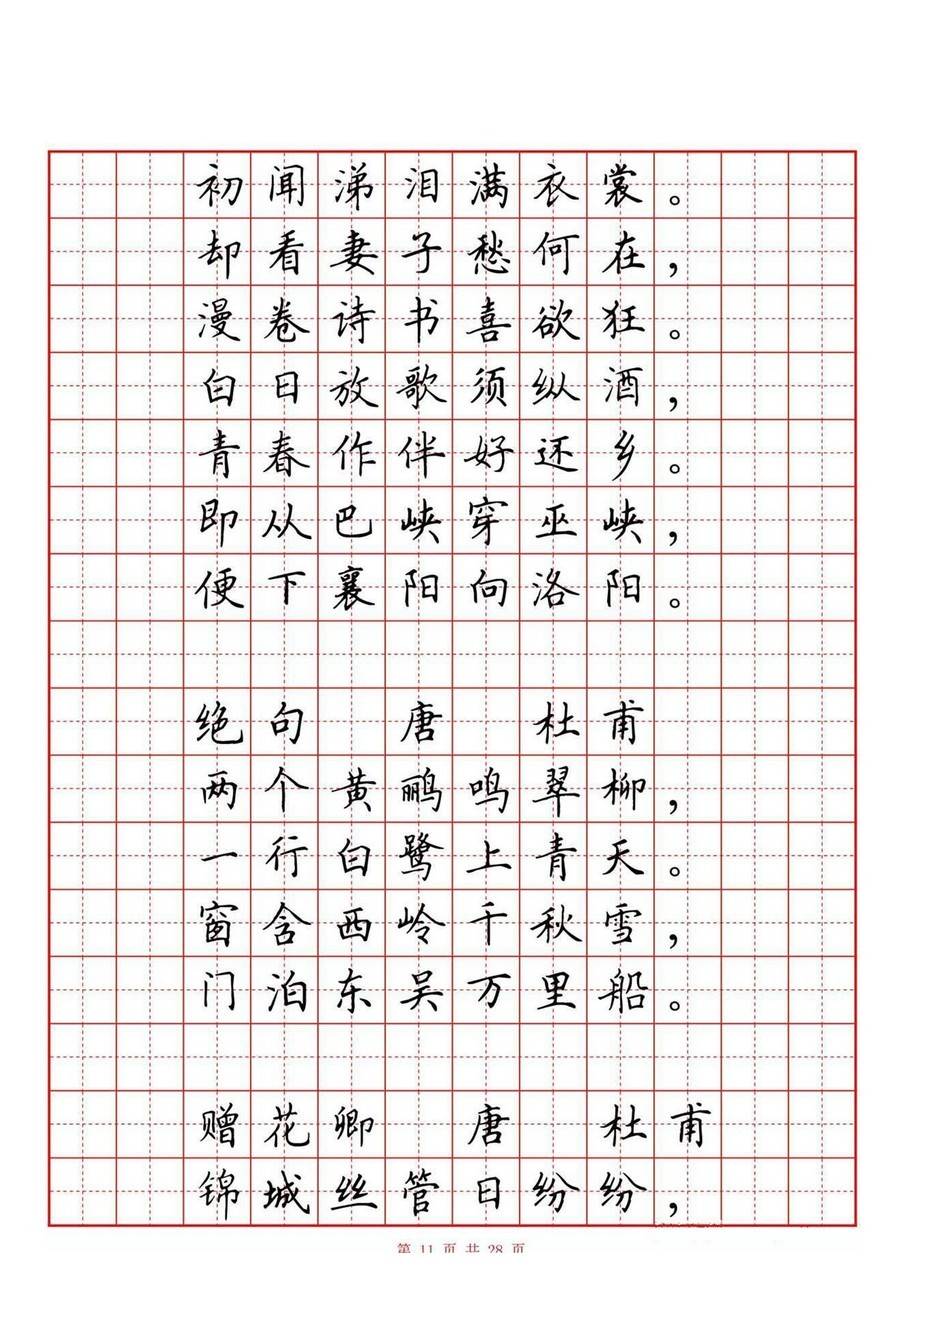 初闻涕泪满衣裳。
却看妻子愁何在，
漫卷诗书喜欲狂。
白日放歌须纵酒，
青春作伴好还乡。
即从巴峡穿巫峡，
便下襄阳向洛阳。
绝句 唐 杜甫
两个黄鹂鸣翠柳，
一行白鹭上青天。
窗含西岭千秋雪，
门泊东吴万里船。
赠花卿 唐 杜甫
锦城丝管日纷纷，
第 11 页 共 28 页